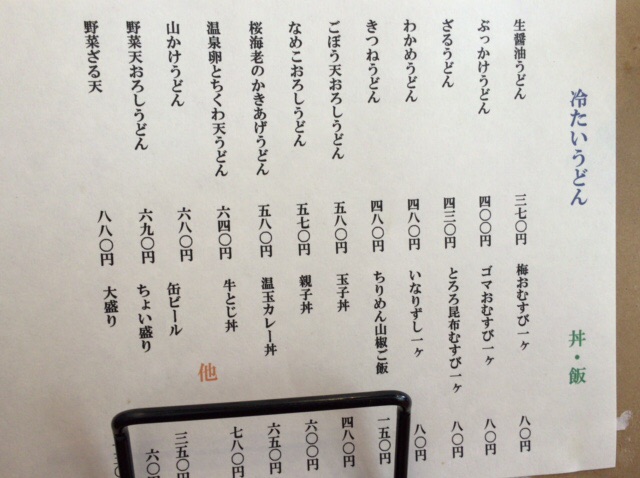 冷たいうどん
生醤油うどん 三七〇円
ぶっかけうどん 四〇〇円
ざるうどん 四三〇円
わかめうどん 四八〇円
きつねうどん 四八〇円
ごぼう天おろしうどん 五八〇円
なめこおろしうどん 五七〇円
桜海老のかきあげうどん 五八〇円
温泉卵とちくわ天うどん 六四〇円
山かけうどん 六八〇円
野菜天おろしうどん 六九〇円
野菜ざる天 八八〇円
丼・飯
梅おむすび一ヶ 八〇円
ゴマおむすび一ヶ 八〇円
とろろ昆布むすび一ヶ 八〇円
いなりずし一ヶ 八〇円
ちりめん山椒ご飯 一五〇円
玉子丼 四八〇円
親子丼 六〇〇円
温玉カレー丼 六五〇円
牛とじ丼 七八〇円
他
缶ビール 三五〇円
ちょい盛り 六〇円
大盛り